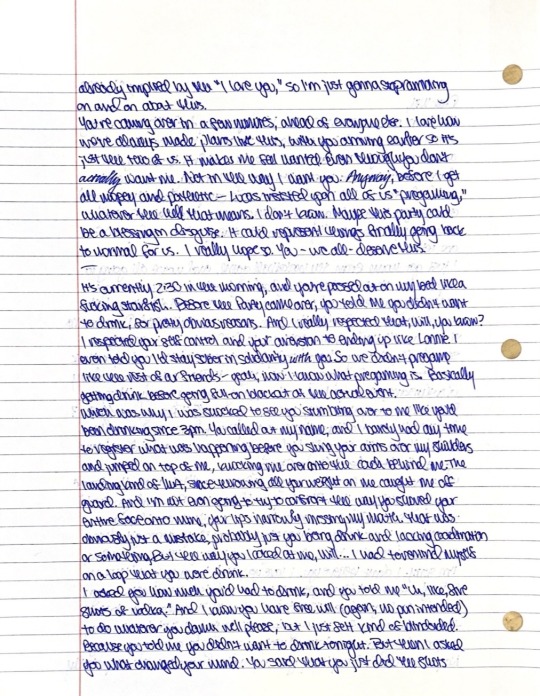 already implied by the "I love you," so I'm just gonna stop rambling
on and on about this.
You're coming over in a few minutes, ahead of everyone else. I love how
we've always made plans like this, with you arriving earlier so it's
just the two of us. It makes me feel wanted. Even though you don't
actually want me. Not in the way I want you. Anyway, before I get
all mopey and pathetic – Lucas insisted upon all of us "pregaming,"
whatever the hell that means. I don't know. Maybe this party could
be a blessing in disguise. It could represent things finally going back
to normal for us. I really hope so. You – we all – deserve this.
It's currently 2:30 in the morning, and you're passed out on my bed like a
fucking starfish. Before the Party came over, you told me you didn't want
to drink, for pretty obvious reasons. And I really respected that, Will, you know?
I respected your self control and your aversion to ending up like Lonnie. I
even told you I'd stay sober in solidarity with you. So we didn't pregame
like the rest of our friends – yeah, now I know what pregaming is. Basically
getting drunk before going full on blackout at the actual event.
Which was why I was shocked to see you stumbling over to me like you'd
been drinking since 3pm. You called out my name, and I barely had any time
to register what was happening before you slung your arms over my shoulders
and jumped on top of me, knocking me over onto the couch behind me. The
landing kind of hurt, since throwing all your weight on me caught me off
guard. And I'm not even going to try to comfort the way you shoved your
entire face onto mine, your lips narrowly missing my mouth. That was
obviously just a mistake, probably just you being drunk and lacking coordination
or something. But the way you looked at me, Will... I had to remind myself
on a loop that you were drunk.
I asked you how much you'd had to drink, and you told me "Uh, like, five
shots of vodka." And I know you have free will (again, no pun intended)
to do whatever you damn well please, but I just felt kind of blindsided.
Because you told me you didn't want to drink tonight. But then I asked
you what changed your mind. You said that you just did the shots